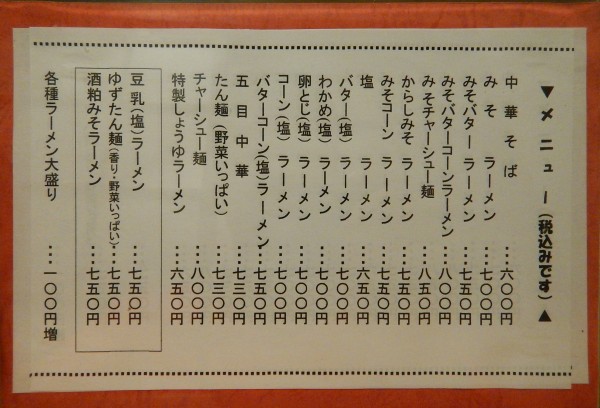 ▼メニュー(税込みです)▲
中華そば・・・六〇〇円
みそラーメン・・・七〇〇円
みそバターラーメン・・・七五〇円
みそバターコーンラーメン・・・八〇〇円
みそチャーシュー麺・・・八五〇円
からしみそラーメン・・・七五〇円
みそコーンラーメン・・・七五〇円
塩ラーメン・・・六五〇円
バター(塩)ラーメン・・・七〇〇円
わかめ(塩)ラーメン・・・七〇〇円
卵とじ(塩)ラーメン・・・七〇〇円
コーン(塩)ラーメン・・・七〇〇円
バターコーン(塩)ラーメン・・・七五〇円
五目中華・・・七三〇円
たん麺(野菜いっぱい)・・・七三〇円
チャーシュー麺・・・八〇〇円
特製しょうゆラーメン・・・六五〇円
豆乳(塩)ラーメン・・・七五〇円
ゆずたん麺(香り・野菜いっぱい)・・・七五〇円
酒粕みそラーメン・・・七五〇円
各種ラーメン大盛り・・・一〇〇円増